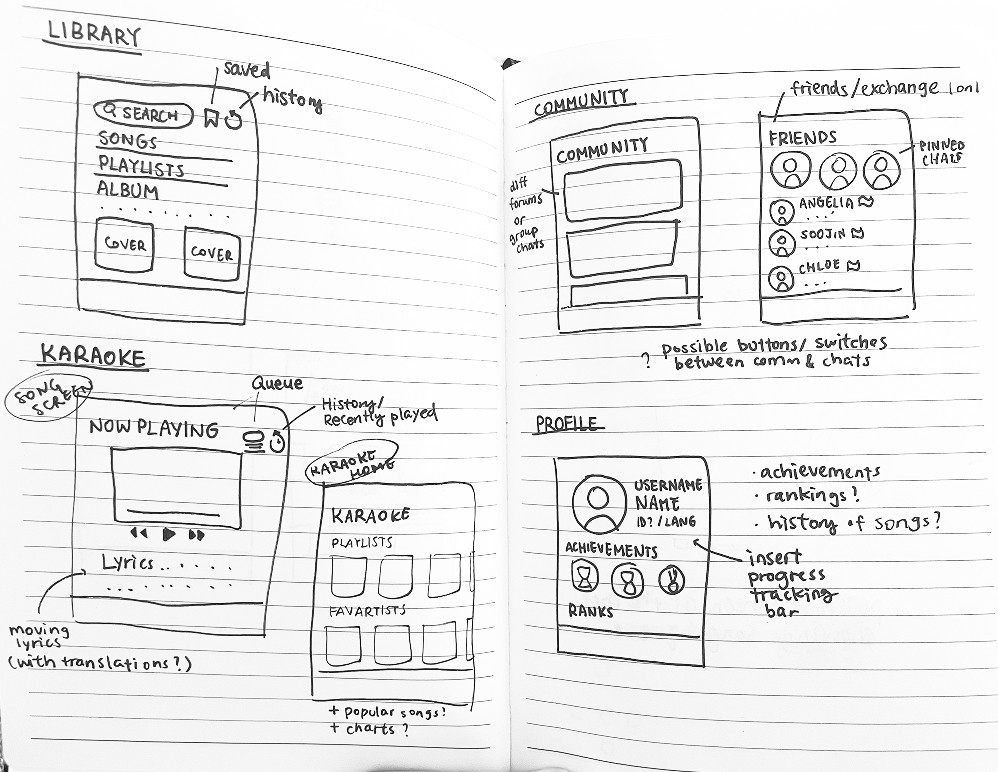 LIBRARY
saved
history
SEARCH
SONGS
PLAYLISTS
ALBUM
COVER
COVER
KARAOKE
SONG
SCREEN
Queue
History/
Recently played
NOW PLAYING
Lyrics
moving
lyrics
(with translations?)
KARAOKE
HOME
KARAOKE
PLAYLISTS
FAV ARTISTS
+ popular songs?
+ charts ?
COMMUNITY
COMMUNITY
diff
forums
or
group
chats
friends/exchange
FRIENDS
PINNED
CHATS
ANGELIA
SOOJIN
CHLOE
? possible buttons/ switches
between comm & chats
PROFILE
USERNAME
NAME
ID? / LANG
ACHIEVEMENTS
RANKS
· achievements
· rankings?
· history of songs?
insert
progress
tracking
bar